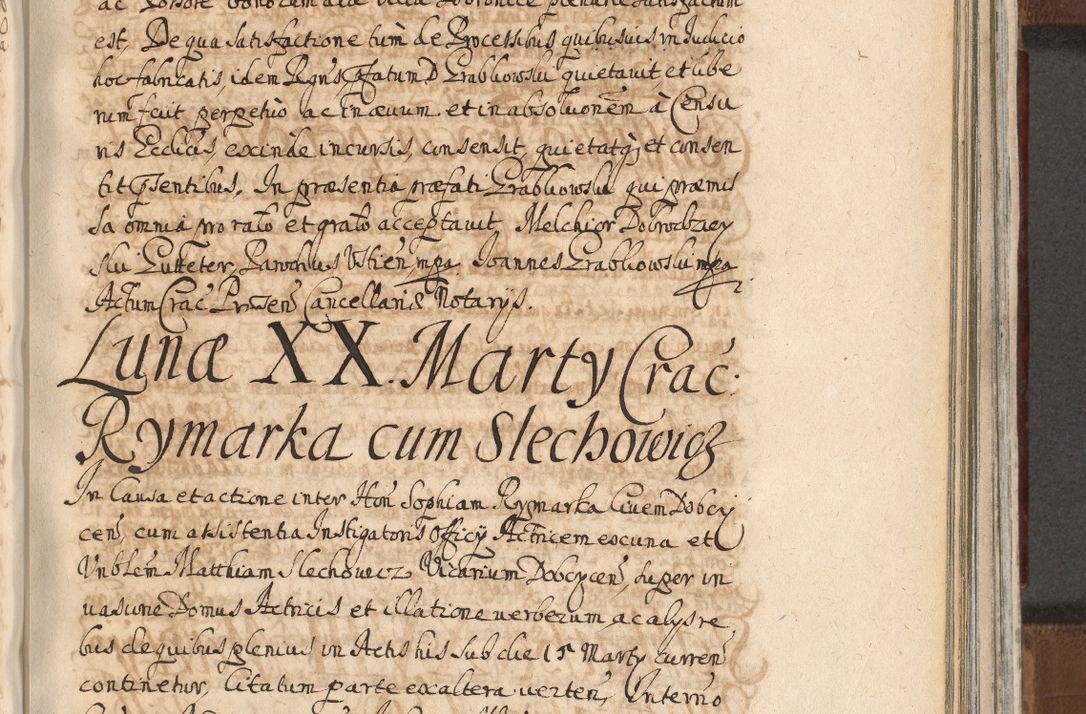 est, De qua satisfactione tum de Processibus quibusuis in Iudicio
hoc fabricatis, idem Regns pfatum D Grabkowski quietauit, et libe
rum fecit perpetuo ac in æuum et in absoluonem à Censu
ris Ecclicis, exinde incursis, consensit, quietatq; et consen
tit psentibus. In præsentia præfati Grabkowski qui præmis
sa omnia pro rato et grato acceptauit, Melchior Dobrodziey
ski Parochus Ustien mpa Ioannes Grabkowski mpa
Actum Crac Presen Cancellariæ Notarijs.
Lunæ XX. Marty Crac:
Rymarka cum Slechowicz
In Causa et actione inter Hon Sophiam Rymarka Ciuem Dobcy
cen, cum assistentia Instigatoris Officÿ Actricem ex una et
Vnblem Matthiam Slechowicz Vicarium Dobczycen, super in
uasione Domus Actricis et illatione uerberum, ac alijs re
bus de quibus plenius in Actis his sub die 15 Marty curren
continetur, Citatum parte ex altera uerten, In termo